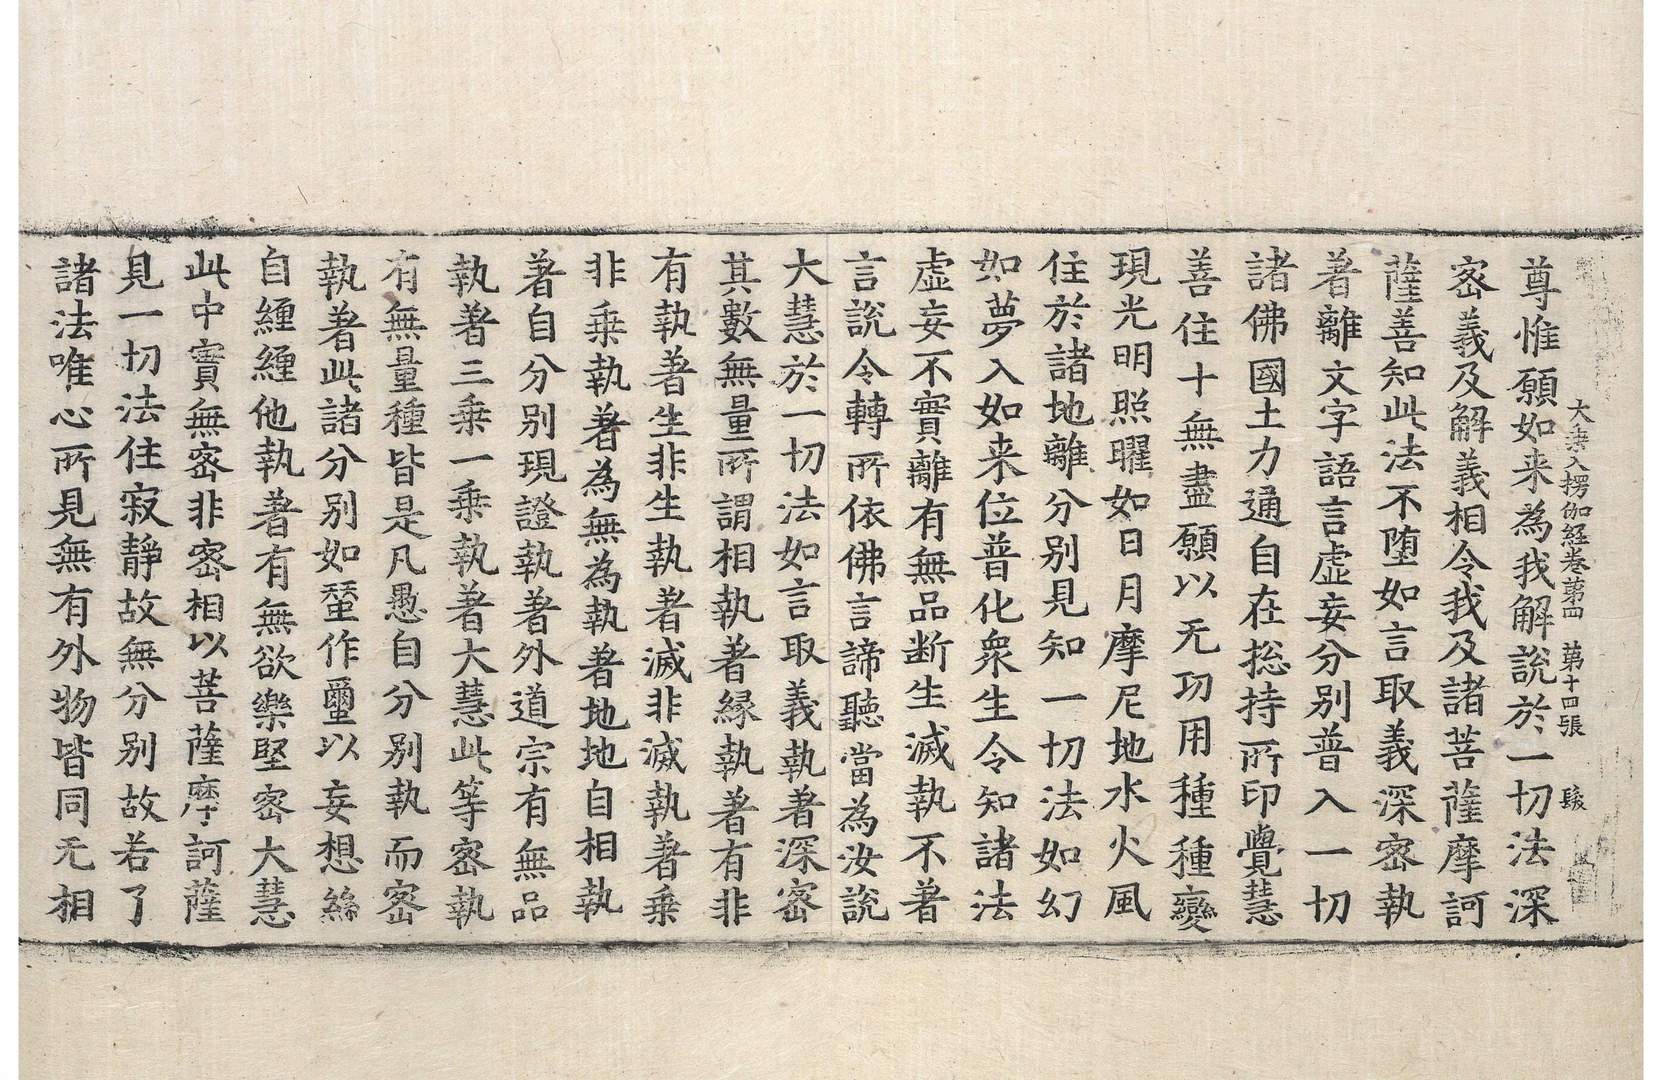 大乗入楞伽経卷第四　第十四張　𩦲
尊惟願如来為我解說於一切法深
密義及解義相令我及諸菩薩摩訶
薩善知此法不堕如言取義深密執
著離文字語言虛妄分別普入一切
諸佛國土力通自在捴持所印覺慧
善住十無盡願以无功用種種變
現光明照曜如日月摩尼地水火風
住於諸地離分別見知一切法如幻
如夢入如来位普化衆生令知諸法
虛妄不實離有無品断生滅執不著
言說令轉所依佛言諦聽當為汝說
大慧於一切法如言取義執著深密
其數無量所謂相執著縁執著有非
有執著生非生執著滅非滅執著乗
非乗執著為無為執著地地自相執
著自分別現證執著外道宗有無品
執著三乗一乗執著大慧此等密執
有無量種皆是凡愚自分別執而密
執著此諸分別如蝅作蠒以妄想絲
自纒纒他執著有無欲樂堅密大慧
此中實無密非密相以菩薩摩訶薩
見一切法住寂靜故無分別故若了
諸法唯心所見無有外物皆同无相